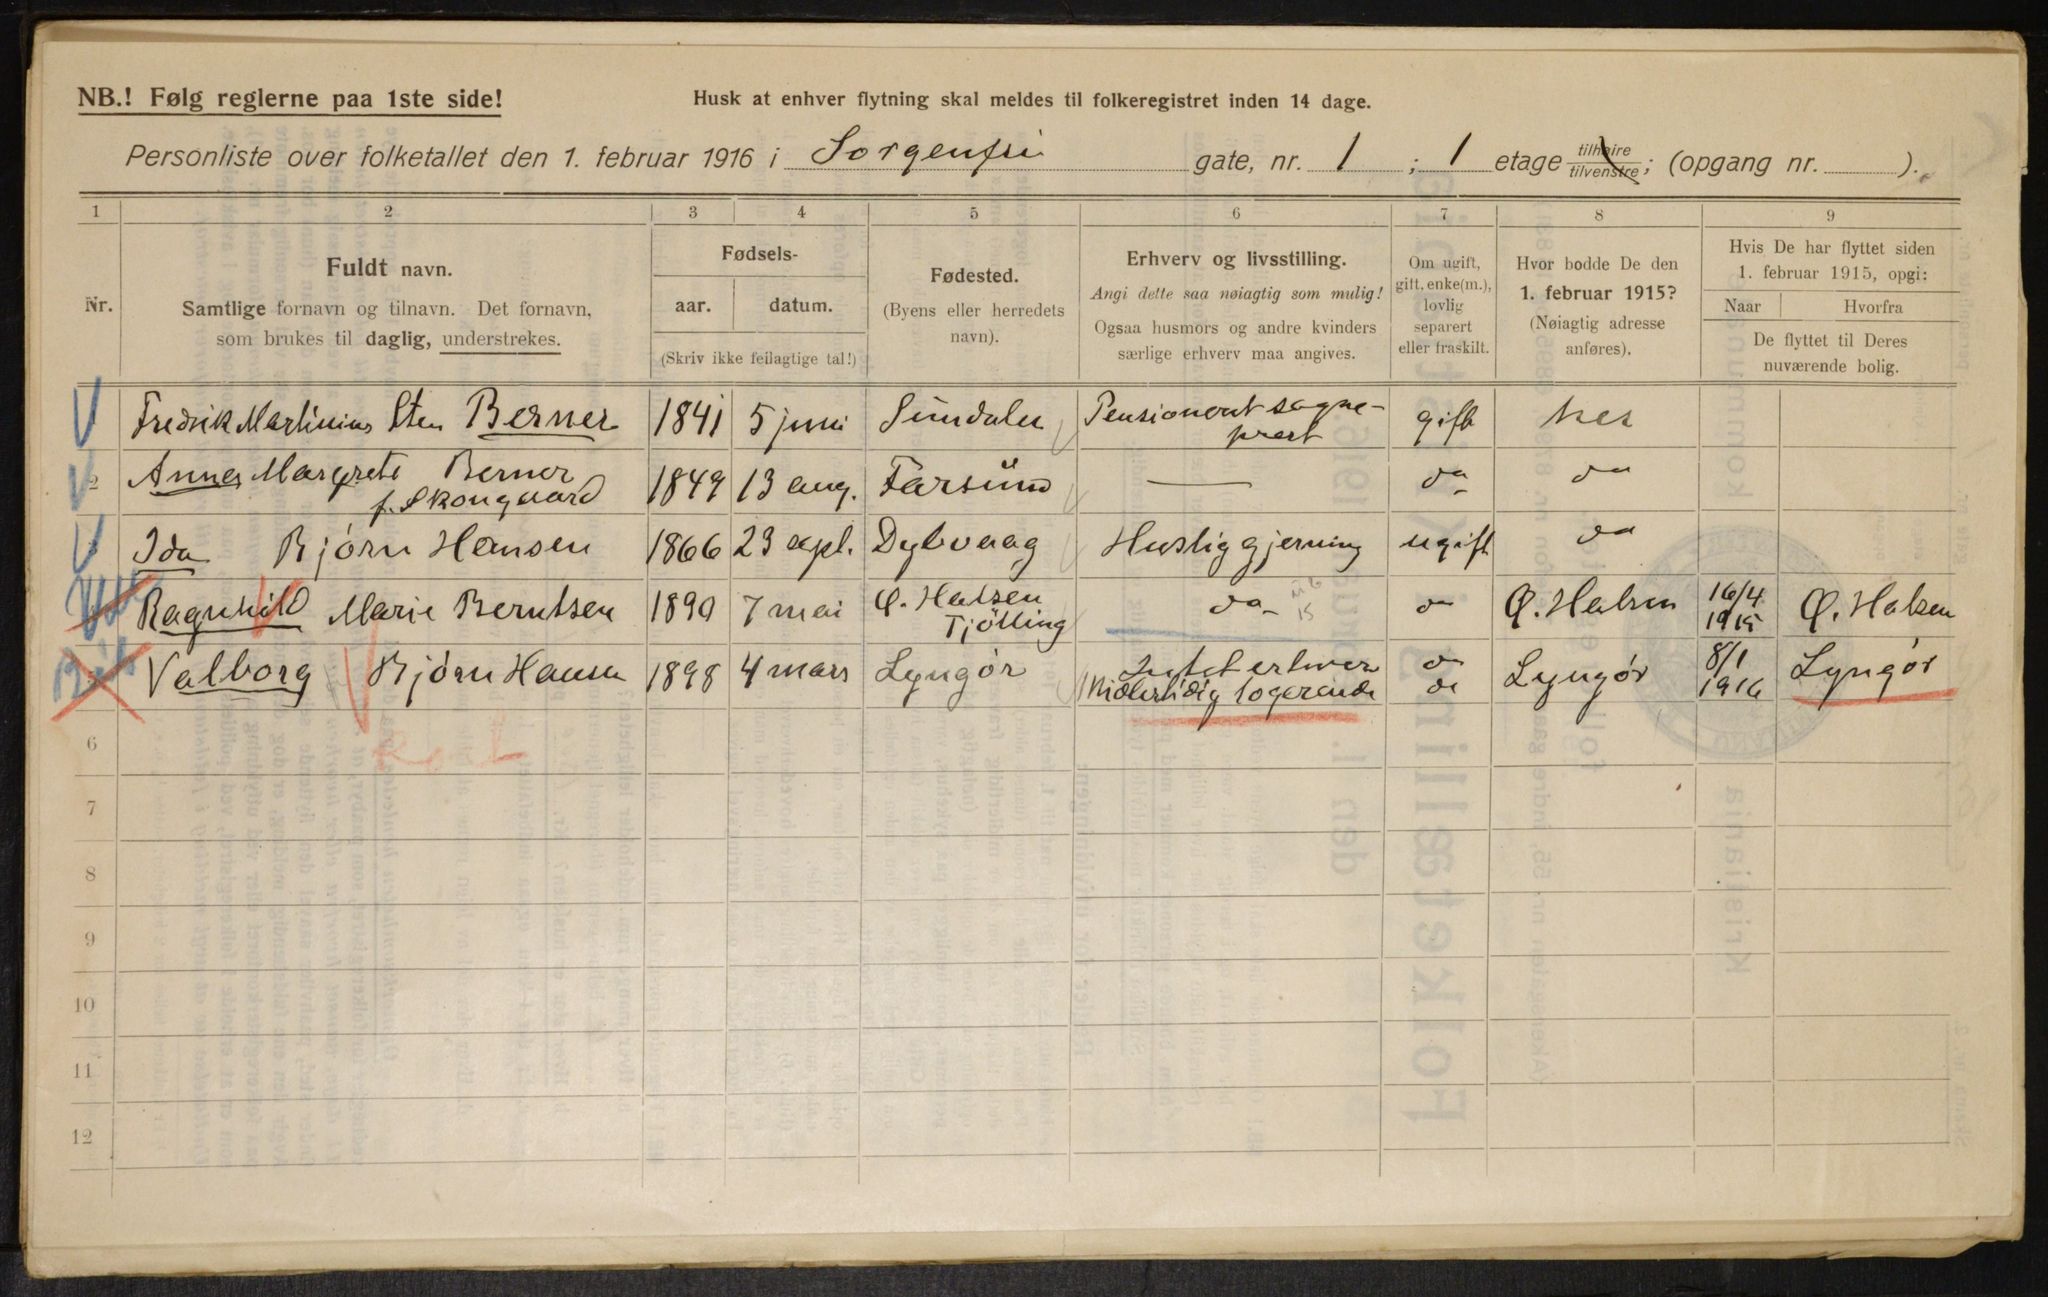 NB.! Følg reglerne paa 1ste side!
Husk at enhver flytning skal meldes til folkeregistret inden 14 dage.
Personliste over folketallet den 1. februar 1916 i Sorgenfri gate, nr. 1 ; 1 etage tilhøire tilvenstre ; (opgang nr. ).
1 2 3 4 5 6 7 8 9
Nr.
Fuldt navn.
Samtlige fornavn og tilnavn. Det fornavn,
som brukes til daglig, understrekes.
Fødsels-
aar. datum.
(Skriv ikke feilagtige tal!)
Fødested.
(Byens eller herredets
navn).
Erhverv og livsstilling.
Angi dette saa nøiagtig som mulig!
Ogsaa husmors og andre kvinders
særlige erhverv maa angives.
Om ugift,
gift, enke(m.),
lovlig
separert
eller fraskilt.
Hvor bodde De den
1. februar 1915?
(Nøiagtig adresse
anføres).
Hvis De har flyttet siden
1. februar 1915, opgi:
Naar Hvorfra
De flyttet til Deres
nuværende bolig.
Fredrik Martinius Sten Berner 1841 5 juni Sundalen Pensionert sogne- gift her
prest
2 Anna Margrete Berner 1849 13 aug. Farsund — da da
f. Skongaard
Ida Bjørn Hansen 1866 23 sept. Dybvaag Huslig gjerning ugift da
Ragnhild Marie Berntsen 1890 7 mai Ø. Halsen da do Ø. Halsen 16/4 Ø. Halsen
Tjølling 1915
Valborg Bjørn Hansen 1898 4 mars Lyngør Intet erhverv do Lyngør 8/1 Lyngør
Midlertidig logerende do 1916
6
7
8
9
10
11
12